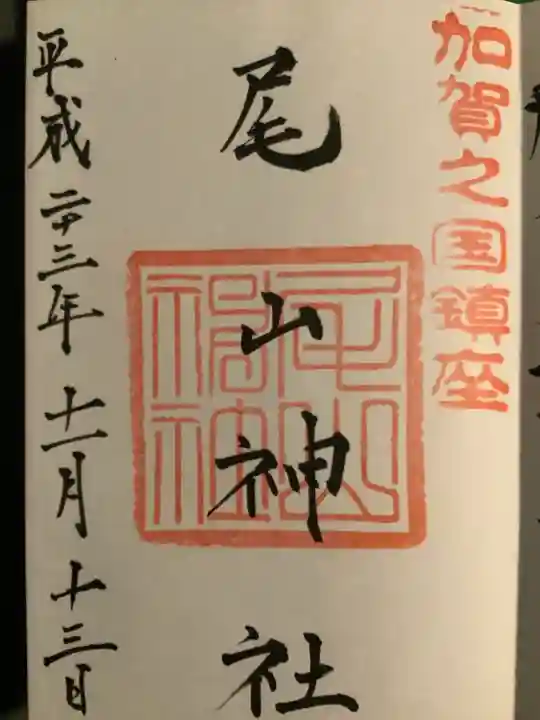 加賀之国鎮座
尾山神社
平成二十三年十一月十三日
尾山
神社